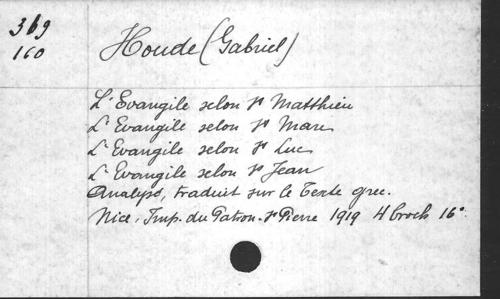 369
160
Houde (Gabriel)
L'Evangile selon St Matthieu
L'Evangile selon St Marc
L'Evangile selon St Luc
L'Evangile selon St Jean
Analysé, traduit sur le Texte grec.
Nice, Imp. du Patron. St Pierre 1919 4 broch 16°